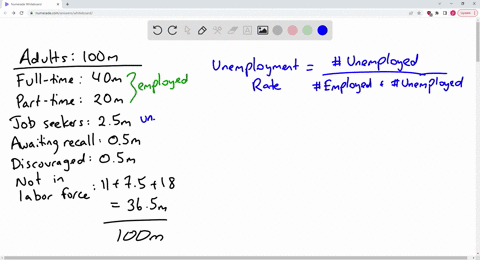 Numerade Whiteboard
numerade.com/educators/whiteboard/
Adults: 100m
Full-time: 40m
Part-time: 20m
employed
Job seekers: 2.5m un
Awaiting recall: 0.5m
Discouraged: 0.5m
Not in
labor force: 11+7.5+18
= 36.5m
100m
Unemployment = # Unemployed
Rate #Employed & #Unemployed